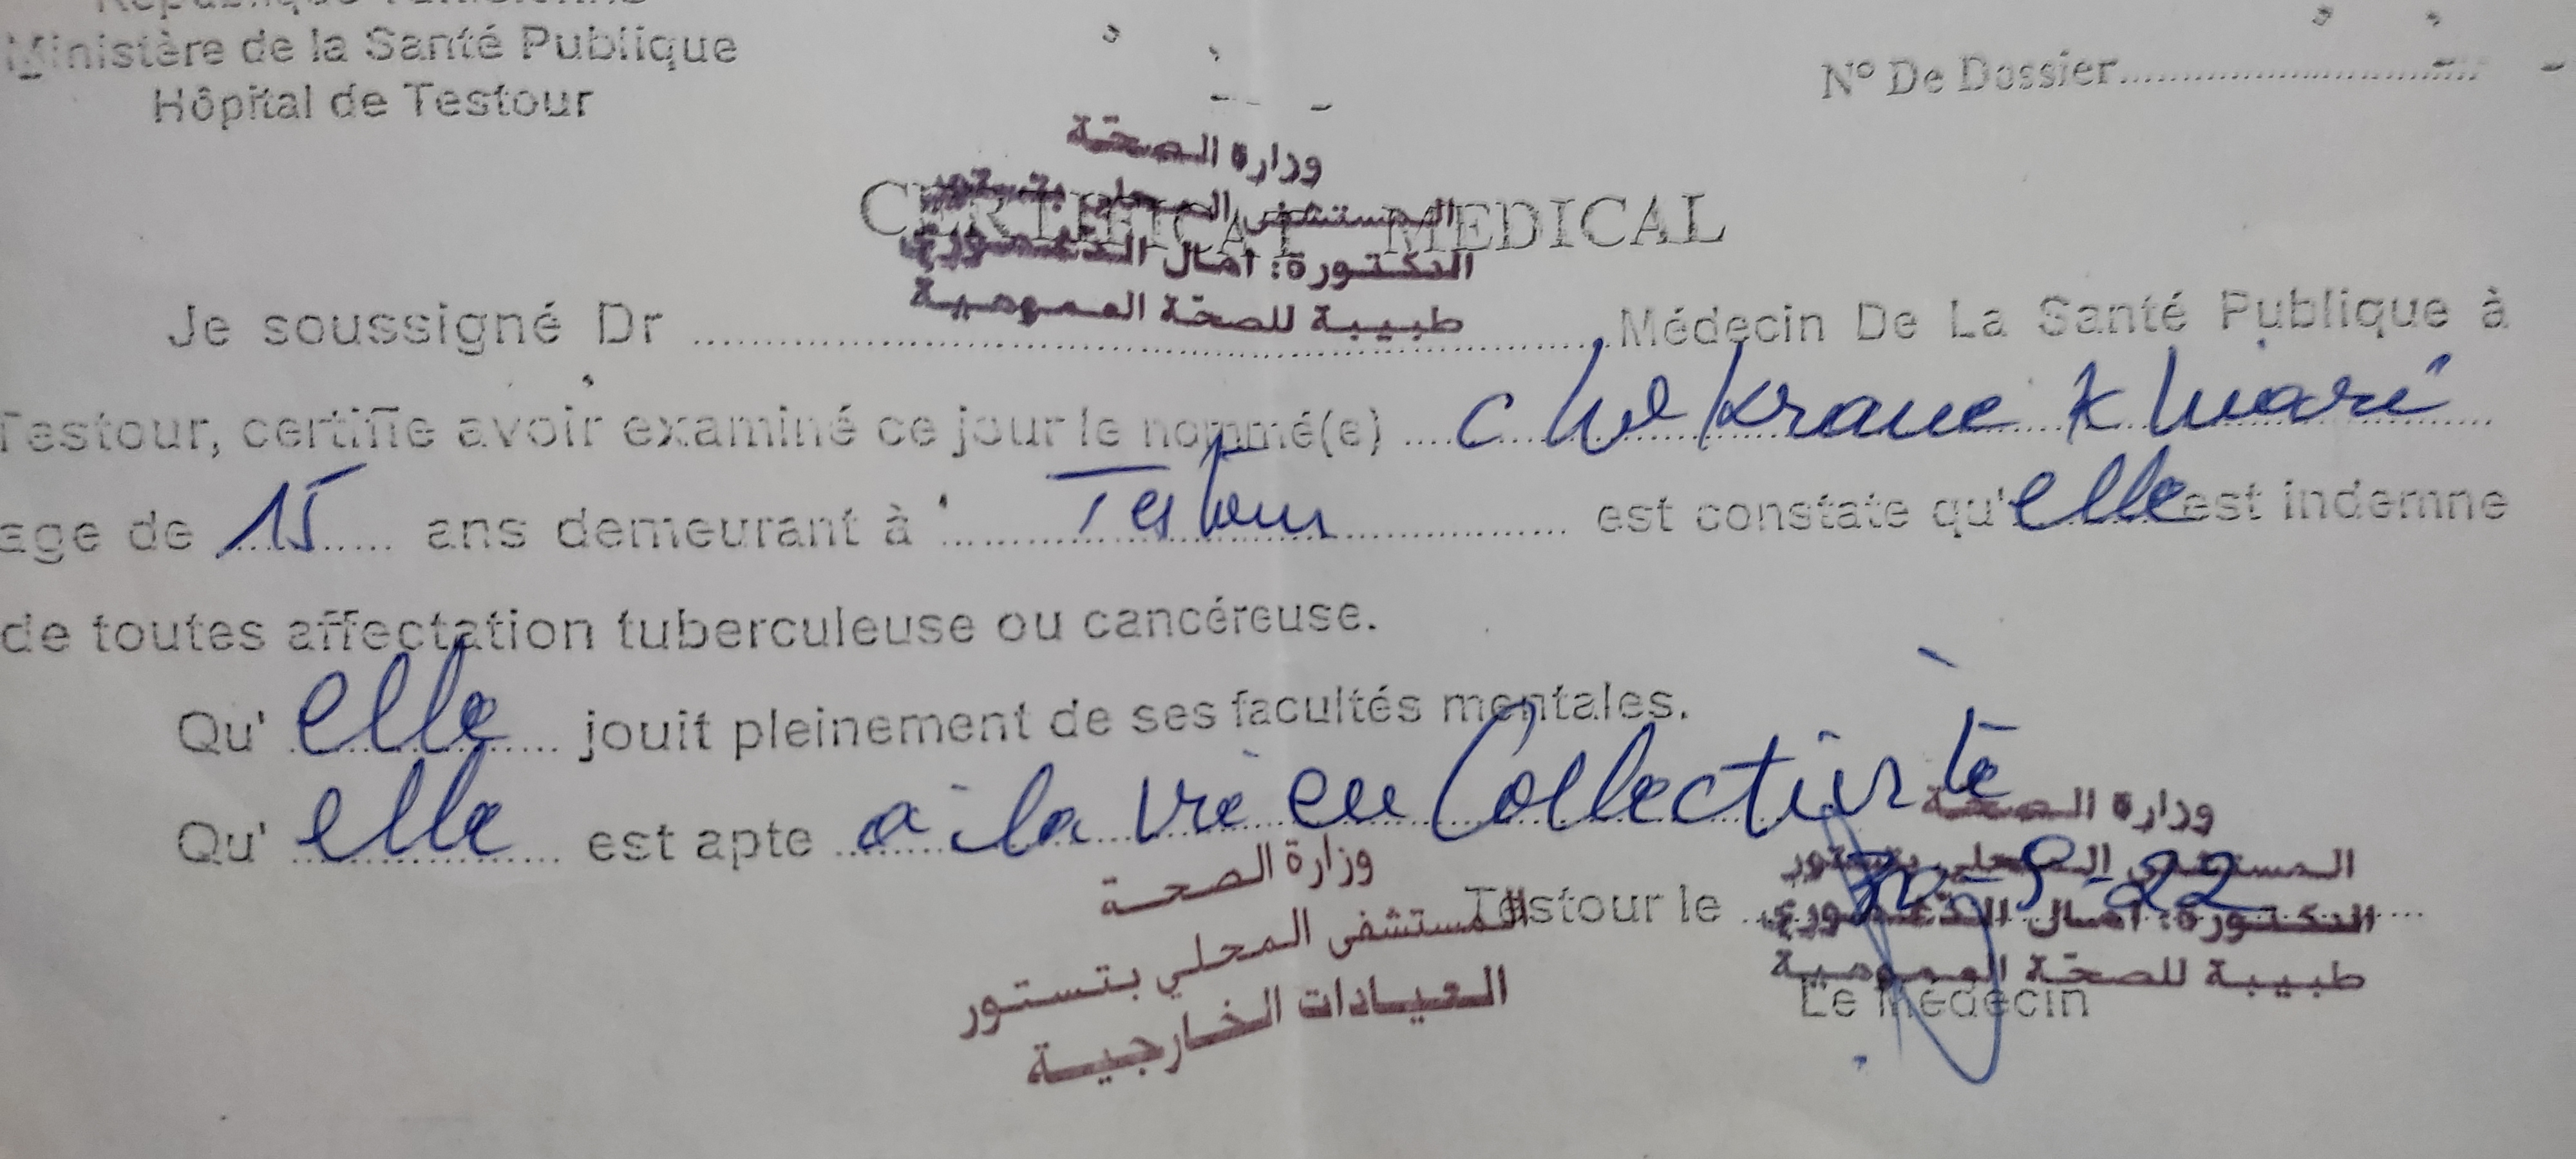 République Tunisienne
Ministère de la Santé Publique
Hôpital de Testour
N° De Dossier
وزارة الصحّة
المستشفى المحلي بتستور
CERTIFICAT MEDICAL
الدكتورة: امال
طبيبة للصحّة العمومية
Je soussigné Dr Médecin De La Santé Publique à
Testour, certifie avoir examiné ce jour le nommé(e) Chekrane Khiari
age de 15 ans demeurant à Testour est constate qu'elle est indemne
de toutes affectation tuberculeuse ou cancéreuse.
Qu' elle jouit pleinement de ses facultés mentales.
Qu' elle est apte à la vie en Collectivité
وزارة الصحّة
وزارة الصحة
المستشفى المحلي بتستور
Testour le -22
المستشفى المحلي بتستور
الدكتورة: امال
العيادات الخارجية
طبيبة للصحّة العمومية
Le Médecin